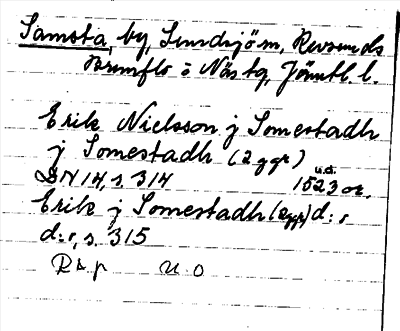 Samsta, by, Sundsjö sn, Revsunds
Brunflo o Näs tg, Jämtl. l.
Erik Nielsson j Somestadh
j Somestadh (2 ggr)
DN 14, s. 314 u.d. 1523 or.
Erik j Somestadh (2ggr) d:r
d:r, s. 315